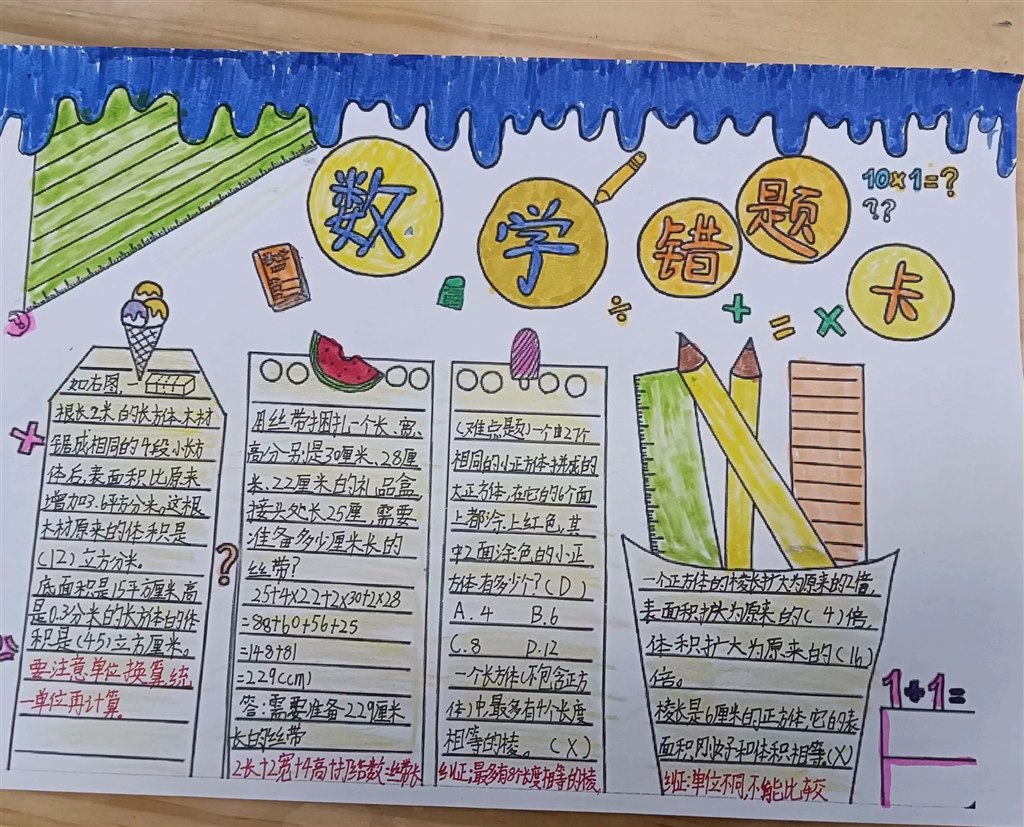 数学错题卡
10×1=?
??
÷
+ = ×
如右图,一
根长2米的长方体木材
锯成相同的4段小长方
体后,表面积比原来
增加3.6平方分米。这根
木材原来的体积是
(12)立方分米。
底面积是15平方厘米,高
是0.3分米的长方体的体
积是(45)立方厘米。
要注意单位换算,统
一单位再计算。
?
用丝带捆扎一个长、宽、
高分别是30厘米、28厘
米、22厘米的礼品盒,
接头处长25厘,需要
准备多少厘米长的
丝带?
25+4×22+2×30+2×28
=88+60+56+25
=148+81
=229(cm)
答:需要准备229厘米
长的丝带
2长+2宽+4高+打结数=丝带长
(难点题)一个由27个
相同的小正方体拼成的
大正方体,在它的6个面
上都涂上红色,其
中2面涂色的小正
方体有多少个?(D)
A.4 B.6
C.8 D.12
一个长方体(不包含正方
体)中最多有4个长度
相等的棱。(×)
纠正:最多有8个长度相等的棱,
一个正方体的棱长扩大为原来的2倍,
表面积扩大为原来的(4)倍,
体积扩大为原来的(16)
倍。
棱长是6厘米的正方体,它的表
面积刚好和体积相等(×)
纠正:单位不同,不能比较
1+1=